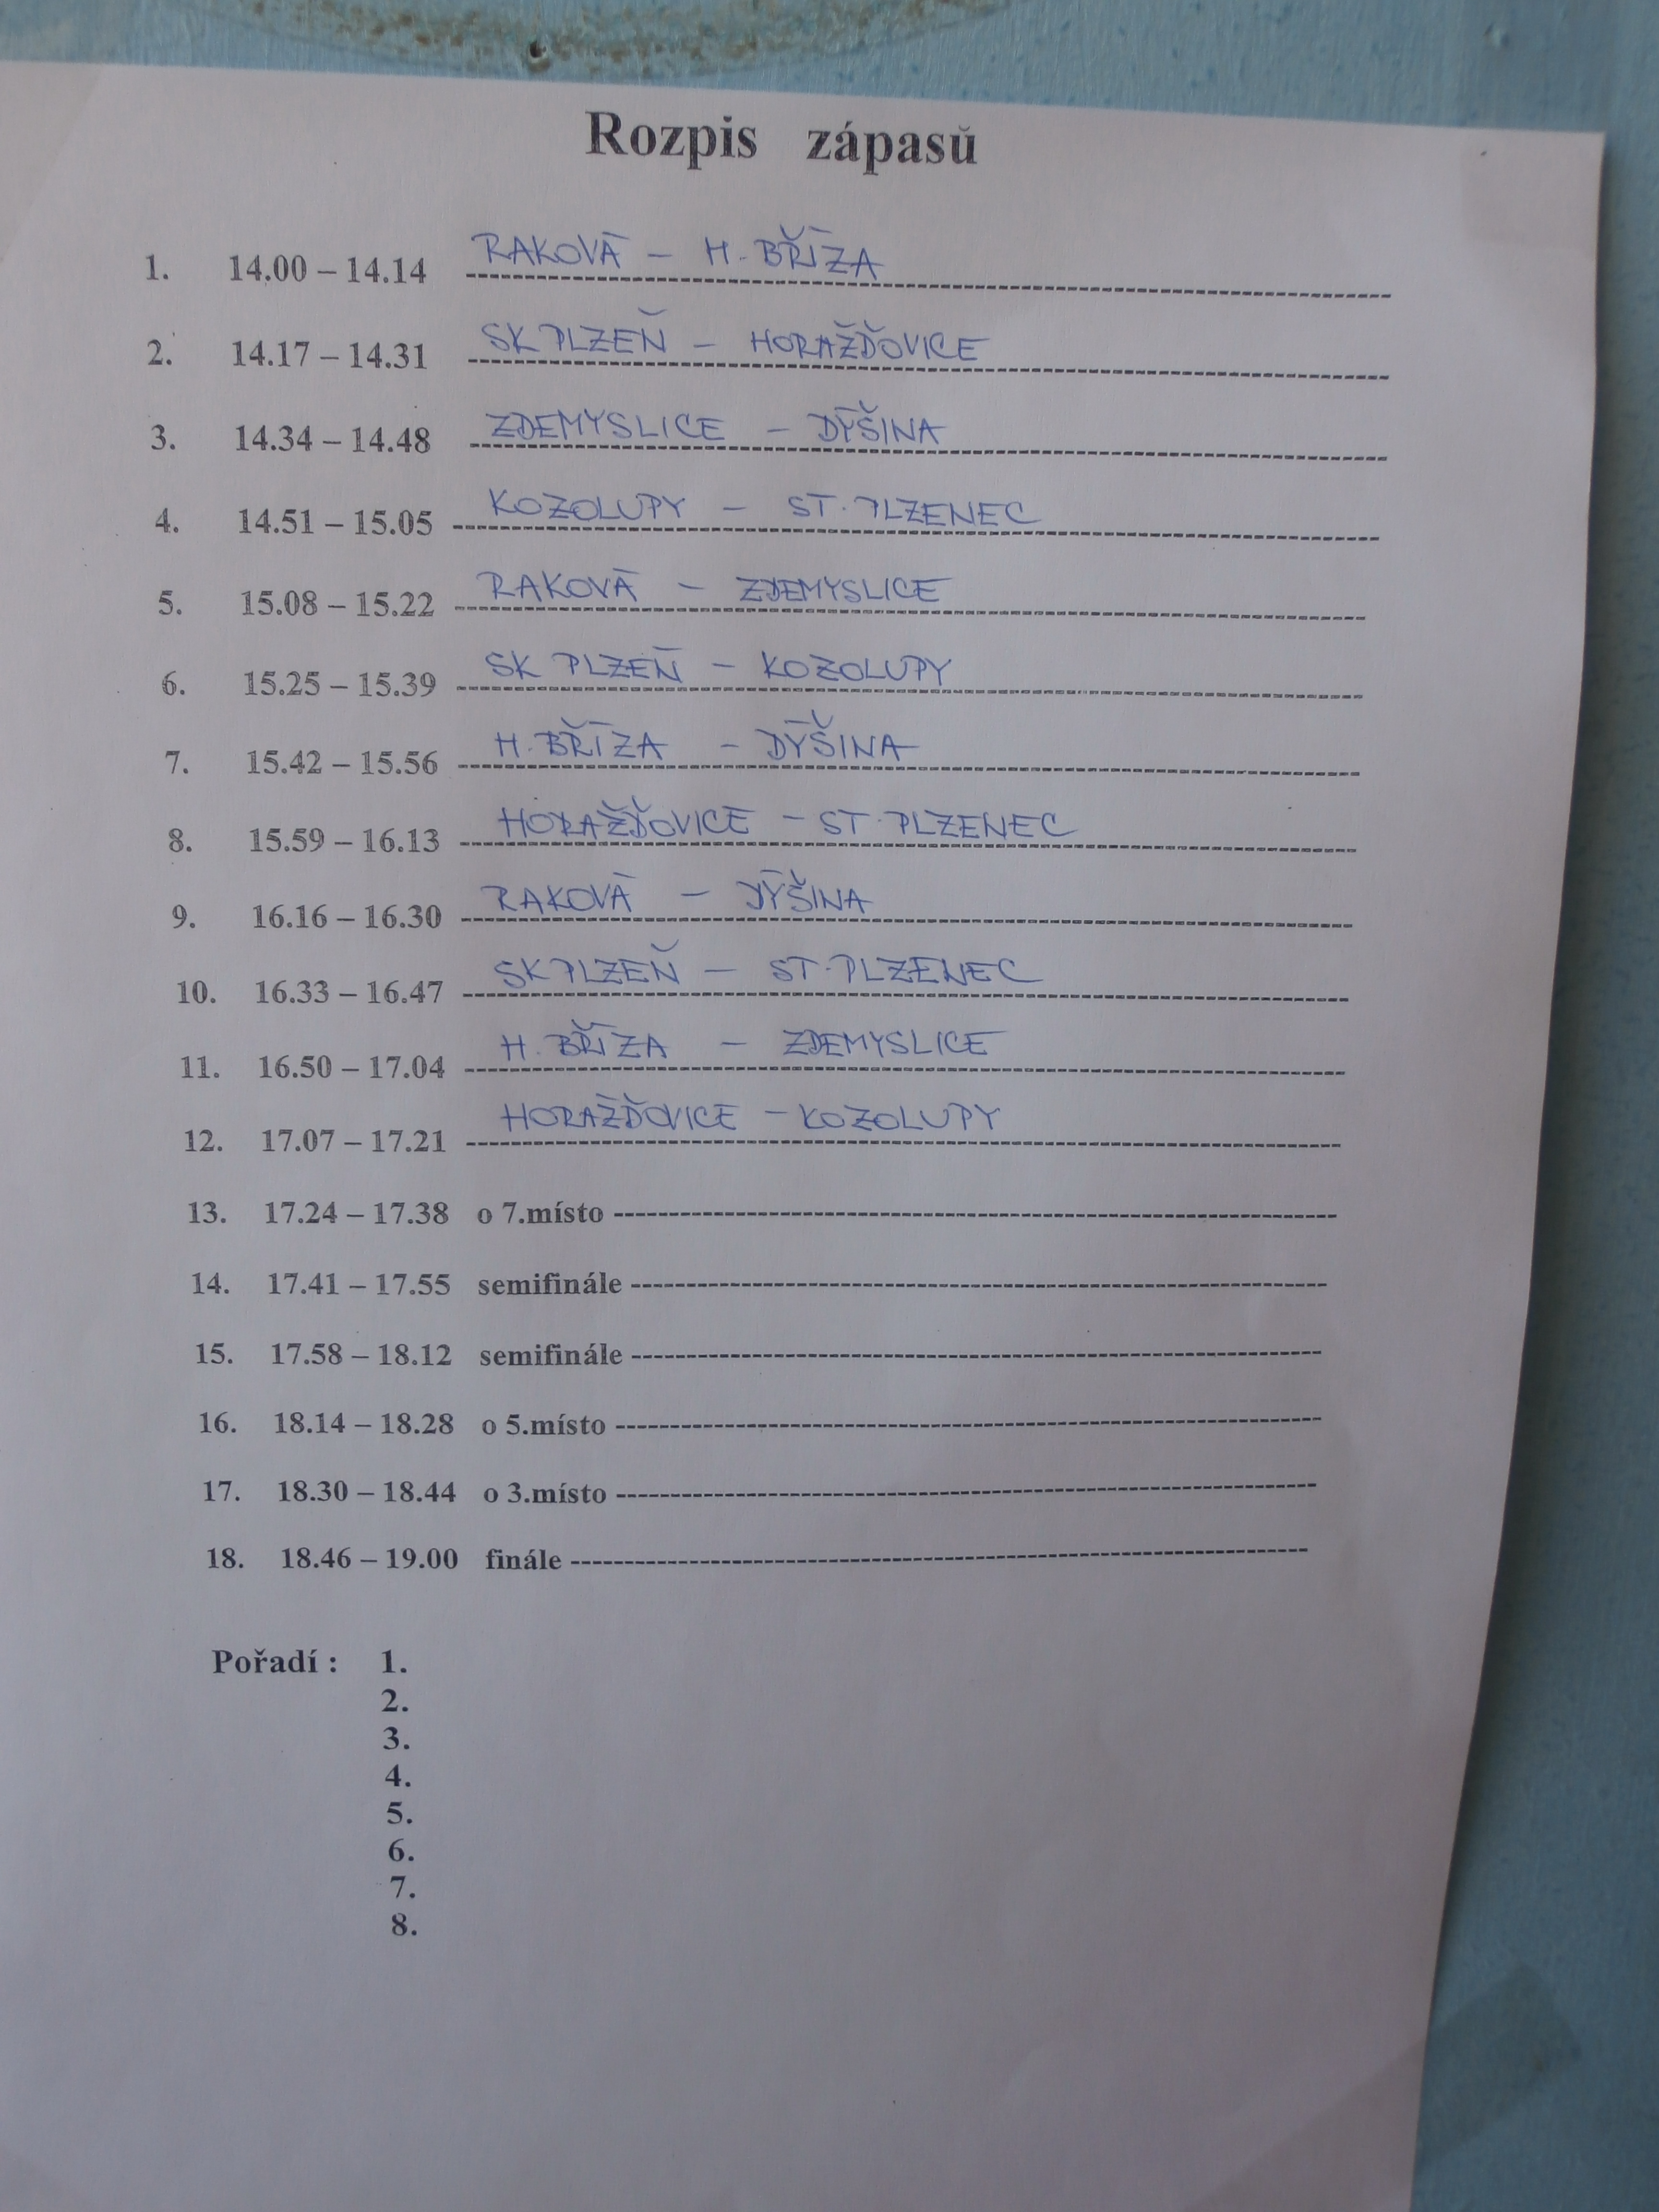 Rozpis zápasů
1. 14.00 – 14.14 RAKOVÁ – H. BŘÍZA
2. 14.17 – 14.31 SK PLZEŇ – HORAŽĎOVICE
3. 14.34 – 14.48 ZDEMYSLICE – DÝŠINA
4. 14.51 – 15.05 KOZOLUPY – ST. PLZENEC
5. 15.08 – 15.22 RAKOVÁ – ZDEMYSLICE
6. 15.25 – 15.39 SK PLZEŇ – KOZOLUPY
7. 15.42 – 15.56 H. BŘÍZA – DÝŠINA
8. 15.59 – 16.13 HORAŽĎOVICE – ST. PLZENEC
9. 16.16 – 16.30 RAKOVÁ – DÝŠINA
10. 16.33 – 16.47 SK PLZEŇ – ST. PLZENEC
11. 16.50 – 17.04 H. BŘÍZA – ZDEMYSLICE
12. 17.07 – 17.21 HORAŽĎOVICE – KOZOLUPY
13. 17.24 – 17.38 o 7.místo
14. 17.41 – 17.55 semifinále
15. 17.58 – 18.12 semifinále
16. 18.14 – 18.28 o 5.místo
17. 18.30 – 18.44 o 3.místo
18. 18.46 – 19.00 finále
Pořadí : 1.
2.
3.
4.
5.
6.
7.
8.